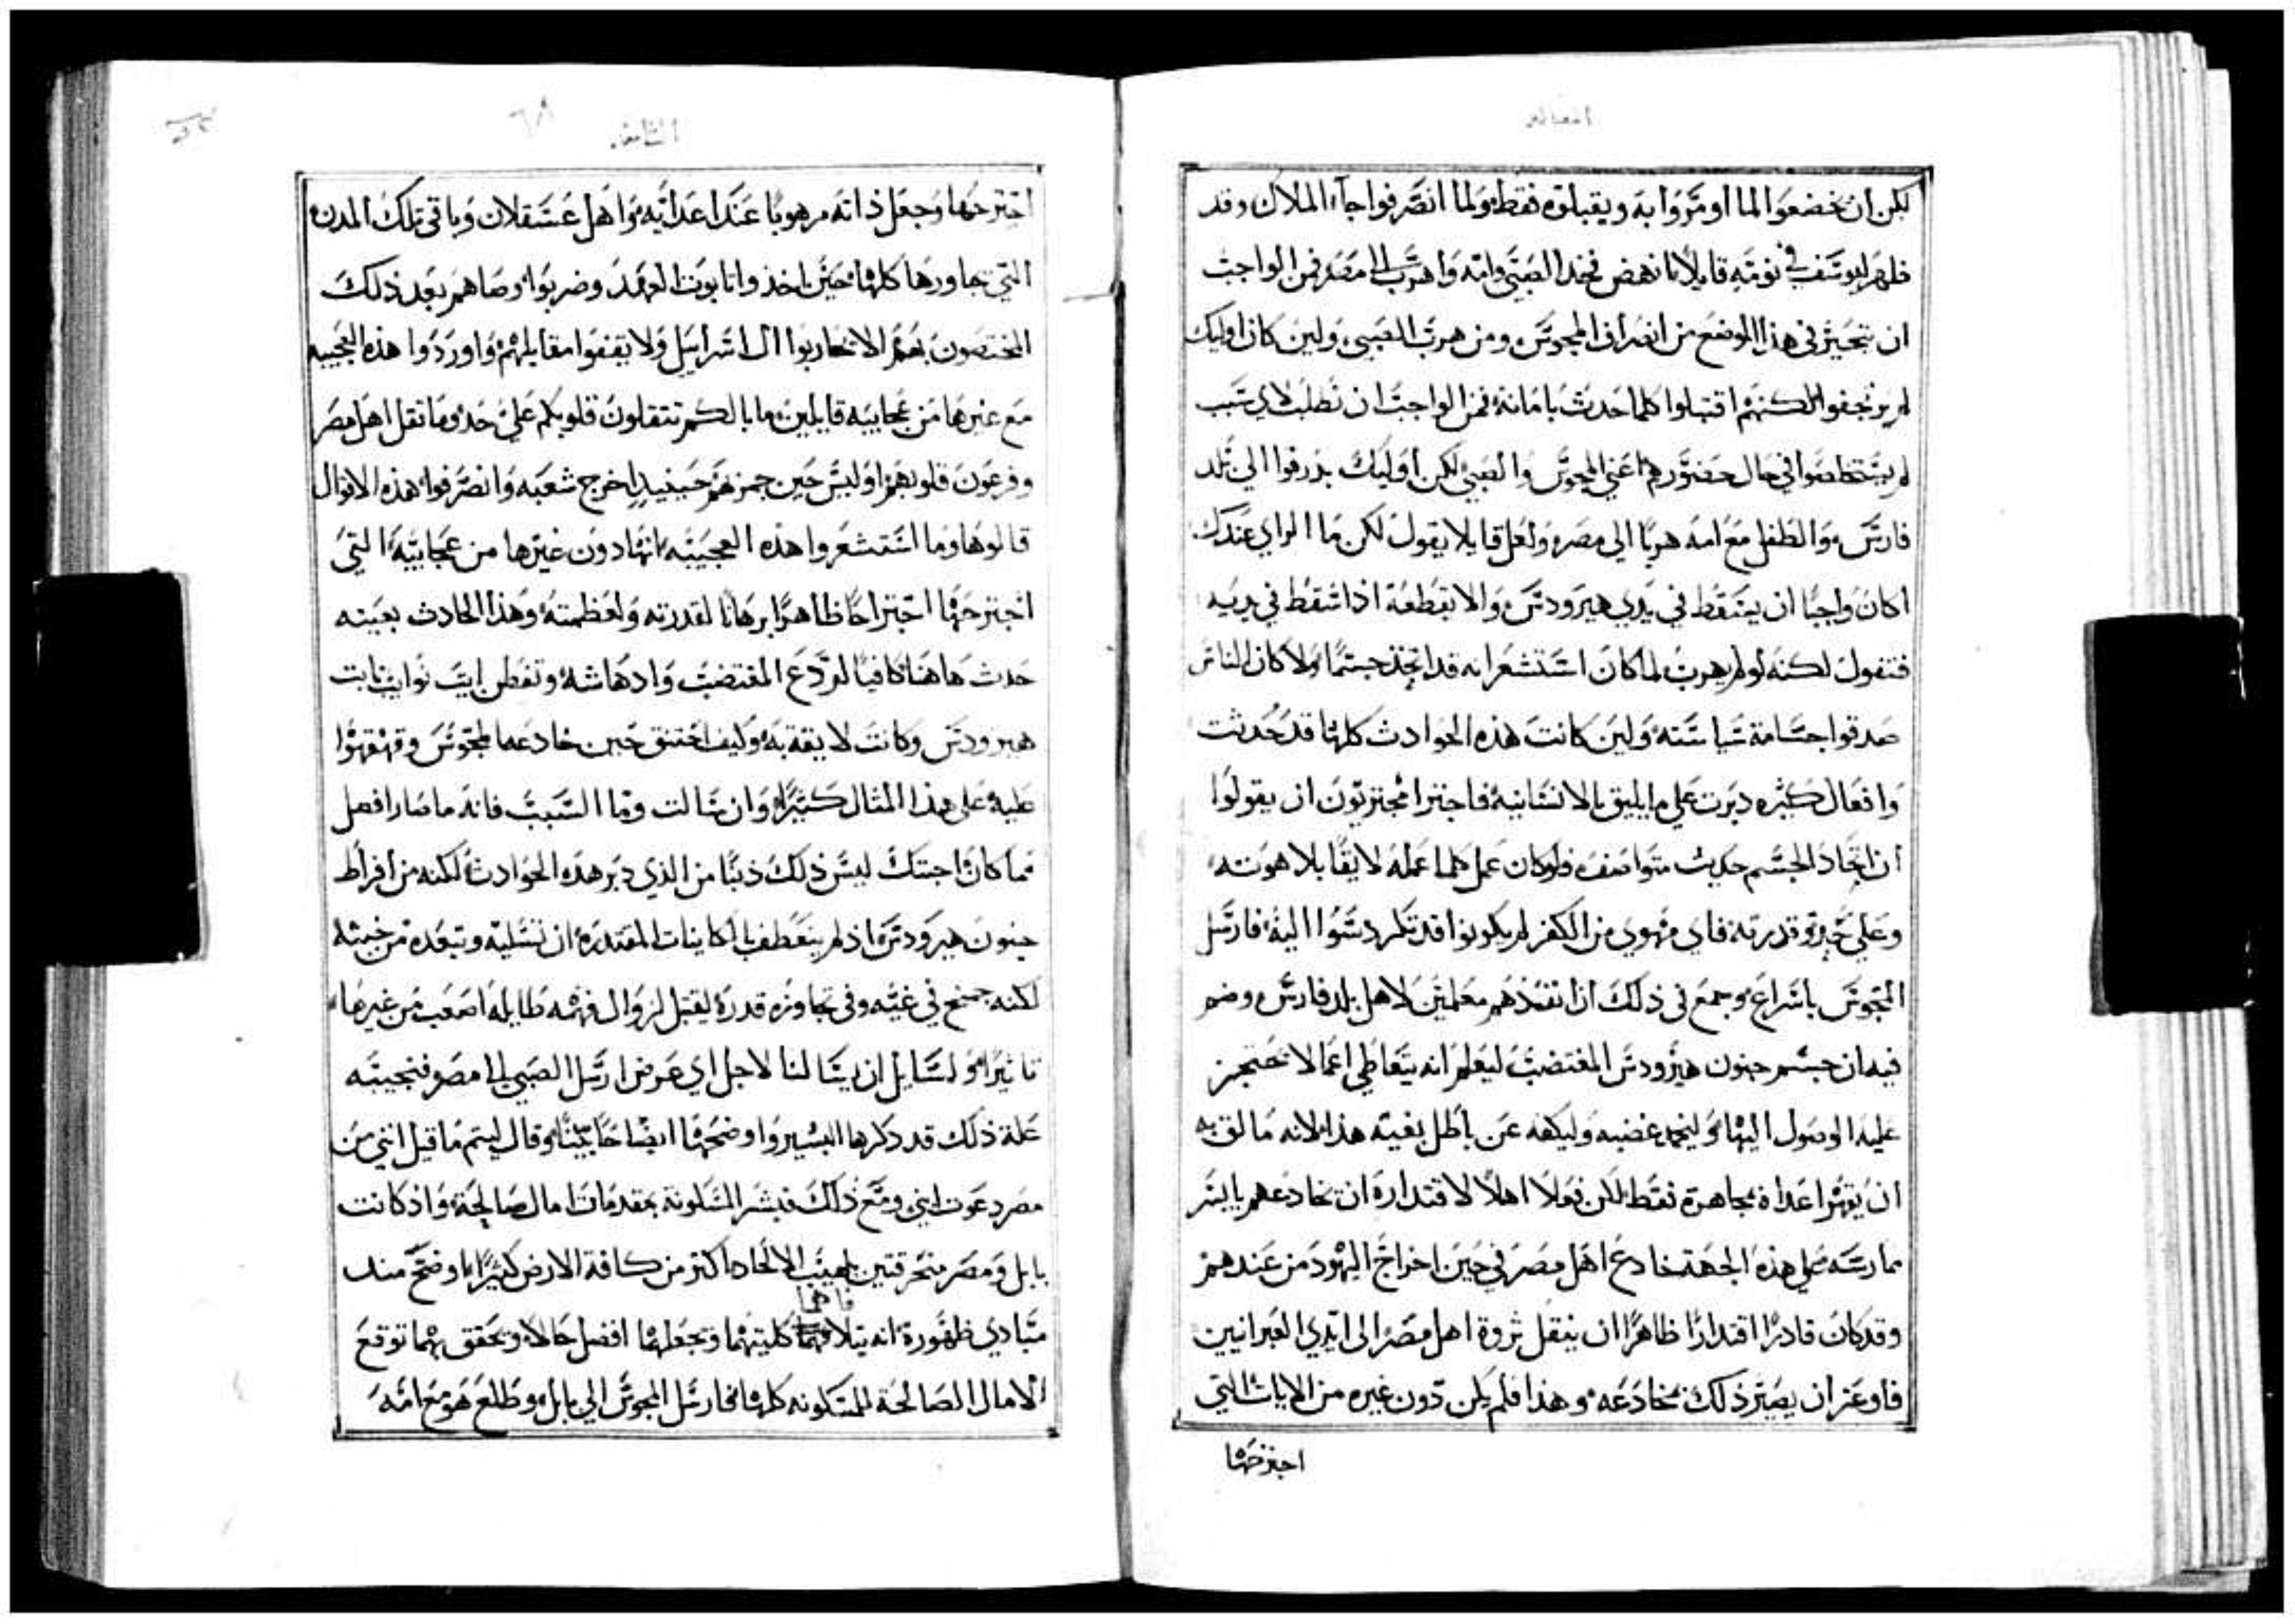 المقاله
لكن ان يخضعوا لما اومروا به ويقبلوه فقط ولما انصرفوا جآء الملاك وقد
ظهر ليوسف في نومته قايلاً انهض فخد الصبي وامه واهرب الى مصر فمن الواجب
ان نتحير في هذا الموضع من انصراف المجوس ومن هرب الصبي ولين كان اوليك
لم يرتجفوا لكنهم اقتبلوا كلما حدث بامانة فمن الواجب ان نطلب لاي سبب
لم يستخلصوا في حال حضورهم اعني المجوس والصبي لكن اوليك بدرقوا الي بلد
فارس والطفل مع امه هربًا الي مصر ولعل قايلا يقول لكن ما الراي عندك
اكان واجبًا ان يسقط في يدي هيرودس والا يقطعه اذا سقط في يديه
فتقول لكنه لو لم يهرب لما كان استشعر انه قد اتخذ جسمًا ولا كان الناس
صدقوا جسامة سياسته ولين كانت هذه الحوادث كلها قد حدثت
وافعال كثيره دبرت علي ما يليق بالانسانيه فاجترا مجتريون ان يقولوا
ان اتخاد الجسم حديث متواصف فلو كان عمل كلما عمله لايقًا بلاهوته
وعلي قدرته فاي مهوي من الكفر لم يكونوا قد تكردسوا اليه فارسل
المجوس باسراع وجمع في ذلك ان انفذهم معلمين لاهل بلد فارس وضم
فيه ان حسم جنون هيرودس المغتصب ليعلم انه يتعاطي اعمالا تحتجز
عليه الوصول اليها وليخمد غضبه وليكفه عن باطل بغيته هذا لانه ما لق به
ان يقهر اعداه مجاهرة فقط لكن فعلا اهلاً لاقتداره ان يخادعهم بايسر
ممارسه علي هذه الجهه خادع اهل مصر في حين اخراج اليهود من عندهم
وقد كان قادرًا اقتدارًا ظاهرًا ان ينقل ثروة اهل مصر الى ايدي العبرانيين
فاوعز ان يصير ذلك بمخادعه وهذا فلم يكن دون غيره من الايات التي
اجترحها
الثامنه
٦٨
اجترحها وجعل ذاته مرهوبًا عند اعدايه واهل عسقلان وباقي تلك المدن
التي جاورها كلها حين اخذوا تابوت العهد وضربوا وصاهم بعد ذلك
المختصون بهم الا يحاربوا ال اسراييل ولا يقفوا مقابلهم واوردوا هذه العجيبه
مع غيرها من عجايبه قايلين ما بالكم تثقلون قلوبكم علي حدو ما ثقل اهل مصر
وفرعون قلوبهم اوليس حين حينيد اخرج شعبه وانصرفوا هذه الاقوال
قالوها وما استشعروا هذه العجيبه انها دون غيرها من عجايبه التي
اجترحها اجتراحًا ظاهرًا برهانا لقدرته ولعظمته وهذا الحادث بعينه
حدث هاهنا كافيًا لردع المغتصب وادهاشه وتفطن ايت نوايب نابت
هيرودس وكانت لايقة به وكيف اختنق حين خادعه المجوس وقهقهوا
عليه علي هذا المثال كثيرًا وان سالت وما السبب فانه ما صار افضل
مما كان اجبتك ليس ذلك ذنبًا من الذي دبر هذه الحوادث لكنه من افراط
جنون هيرودس اذ لم ينعطف بالكاينات المقتدره ان تسليه وتبعده من خبثه
لكنه جمح في غيه وفي تجاوزه قدره ليقبل لزوال فهمه طايله اصعب من غيرها
تاثيرًا ولسايل ان يسالنا لاجل اي عرض ارسل الصبي الى مصر فنجيبه
علة ذلك قد ذكرها البشير واوضحها ايضاحًا بينًا وقال ليتم ما قيل انني من
مصر دعوت ابني ومع ذلك فبشر المسكونة بمقدمات امال صالحة واذ كانت
بابل ومصر متحرقتين بلهيب الالحاد اكثر من كافة الارض كثيرًا اوضح منذ
مبادي ظهوره انه يتلافاهما كليتهما ويجعلهما افضل حالاً ويحقق بهما توقع
الامال الصالحة للمسكونه كلها فارسل المجوس الي بابل وطلع هو مع امه